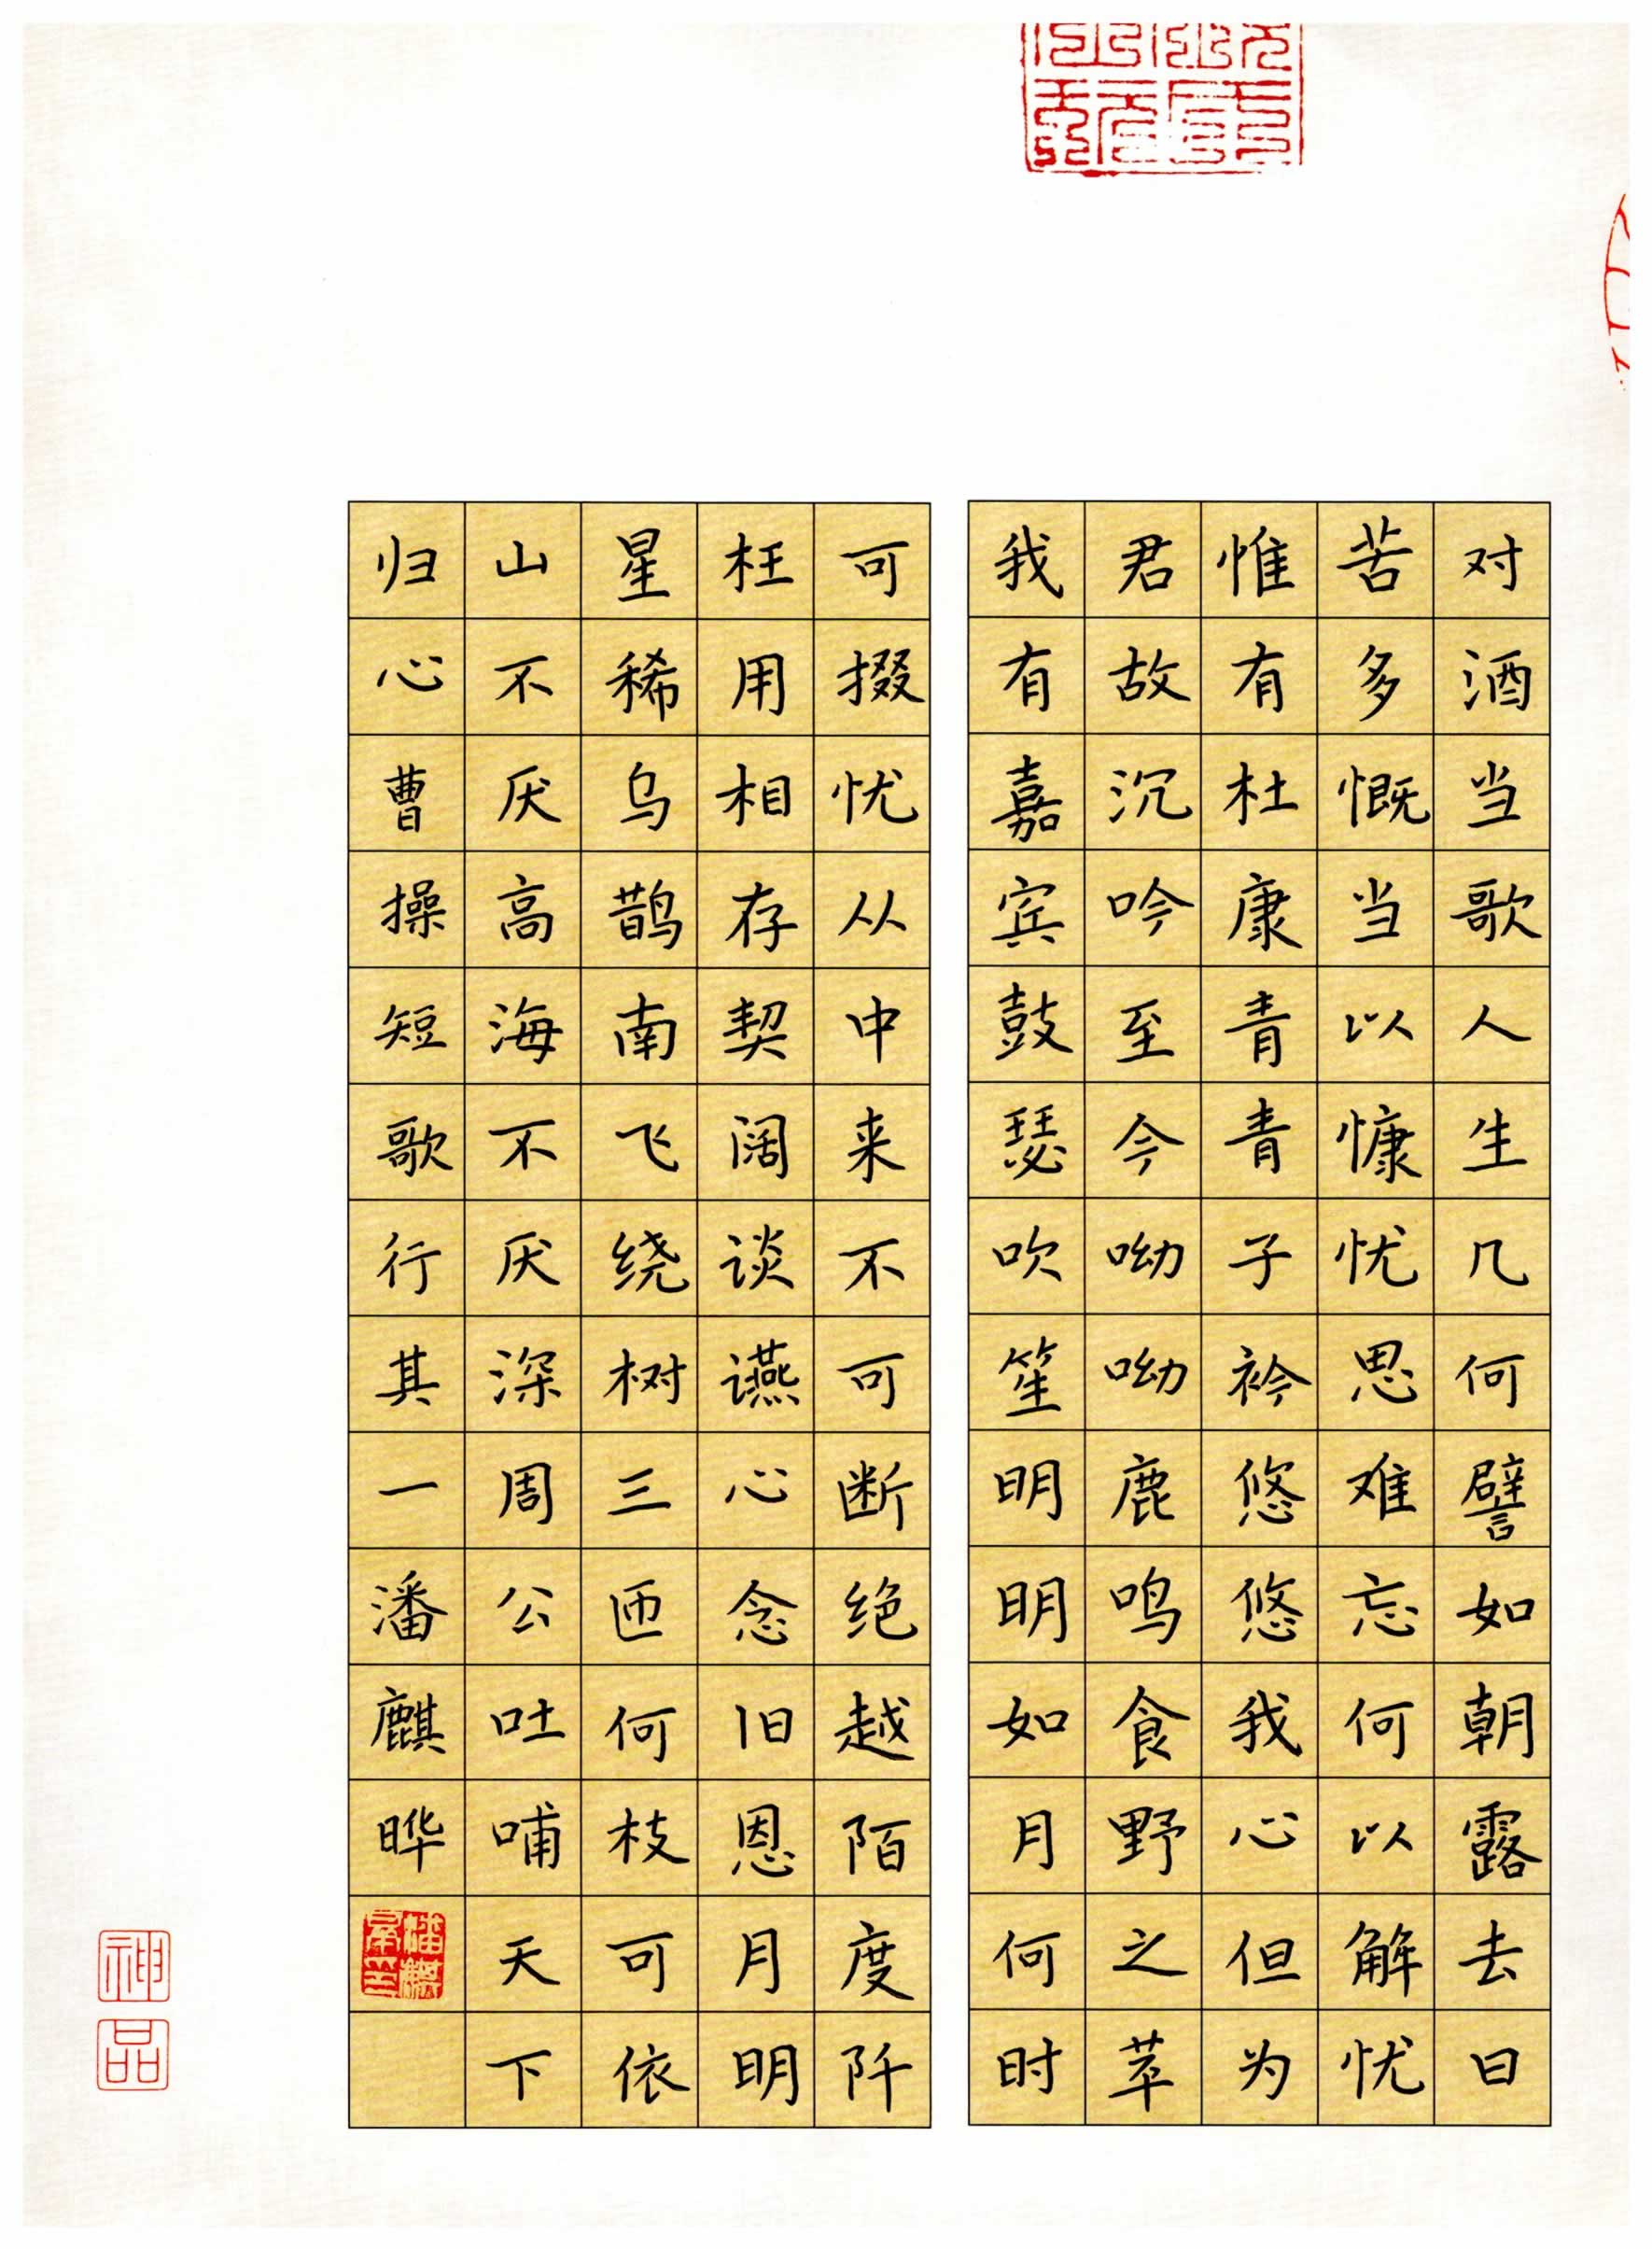 对酒当歌人生几何譬如朝露去日
苦多慨当以慷忧思难忘何以解忧
惟有杜康青青子衿悠悠我心但为
君故沉吟至今呦呦鹿鸣食野之苹
我有嘉宾鼓瑟吹笙明明如月何时
可掇忧从中来不可断绝越陌度阡
枉用相存契阔谈䜩心念旧恩月明
星稀乌鹊南飞绕树三匝何枝可依
山不厌高海不厌深周公吐哺天下
归心曹操短歌行其一潘麒晔
神品